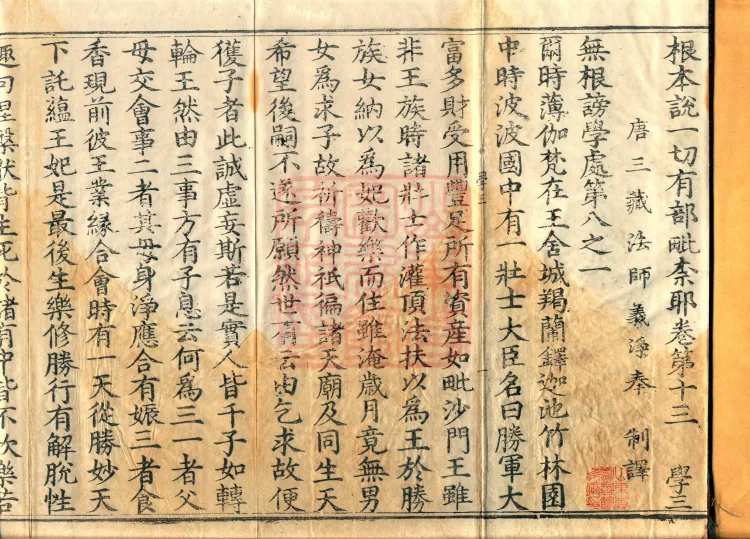 根本說一切有部毗柰耶卷第十三 學三
唐三藏法師義淨奉 制譯
無根謗學處第八之一
爾時薄伽梵在王舍城羯蘭鐸迦池竹林園
中時波波國中有一壯士大臣名曰勝軍大
富多財受用豐足所有資産如毗沙門王雖
非王族時諸壯士作灌頂法扶以爲王於勝
族女納以爲妃歡樂而住雖淹歳月竟無男
女爲求子故祈禱神祇徧諸天廟及同生天
希望後嗣不遂所願然世有云由乞求故便
獲子者此誠虛妄斯若是實人皆千子如轉
輪王然由三事方有子息云何爲三一者父
母交會事二者其母身淨應合有娠三者食
香現前彼王業緣合會時有一天從勝妙天
下託蘊王妃是最後生樂修勝行有解脫性
趣向涅槃於諸有中皆不欣樂若